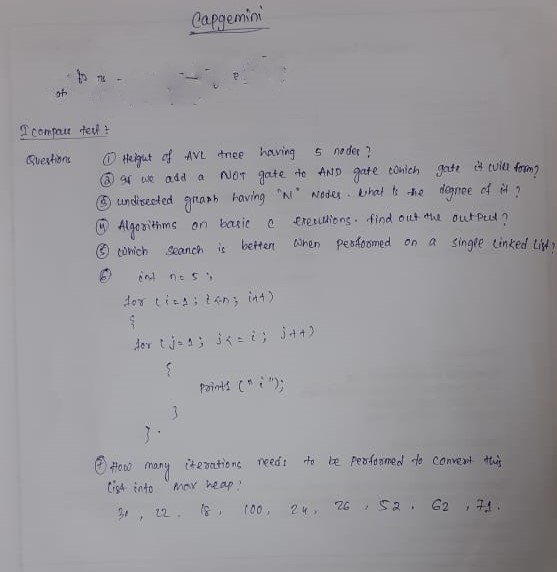 Capgemini
I compare test :
Questions ① Height of AVL tree having 5 nodes ?
② If we add a NOT gate to AND gate which gate it will form?
③ undirected graph having "N" Nodes. What is the degree of it ?
④ Algorithms on basic c executions. find out the output ?
⑤ which search is better when performed on a single linked list?
⑥ int n = 5 ;
for (i=1 ; i<n ; i++)
{
for (j=1 ; j<=i ; j++)
{
printf ("i");
}
}.
⑦ How many iterations needs to be performed to convert this
list into max heap?
30, 22, 18, 100, 24, 26, 52, 62, 71.